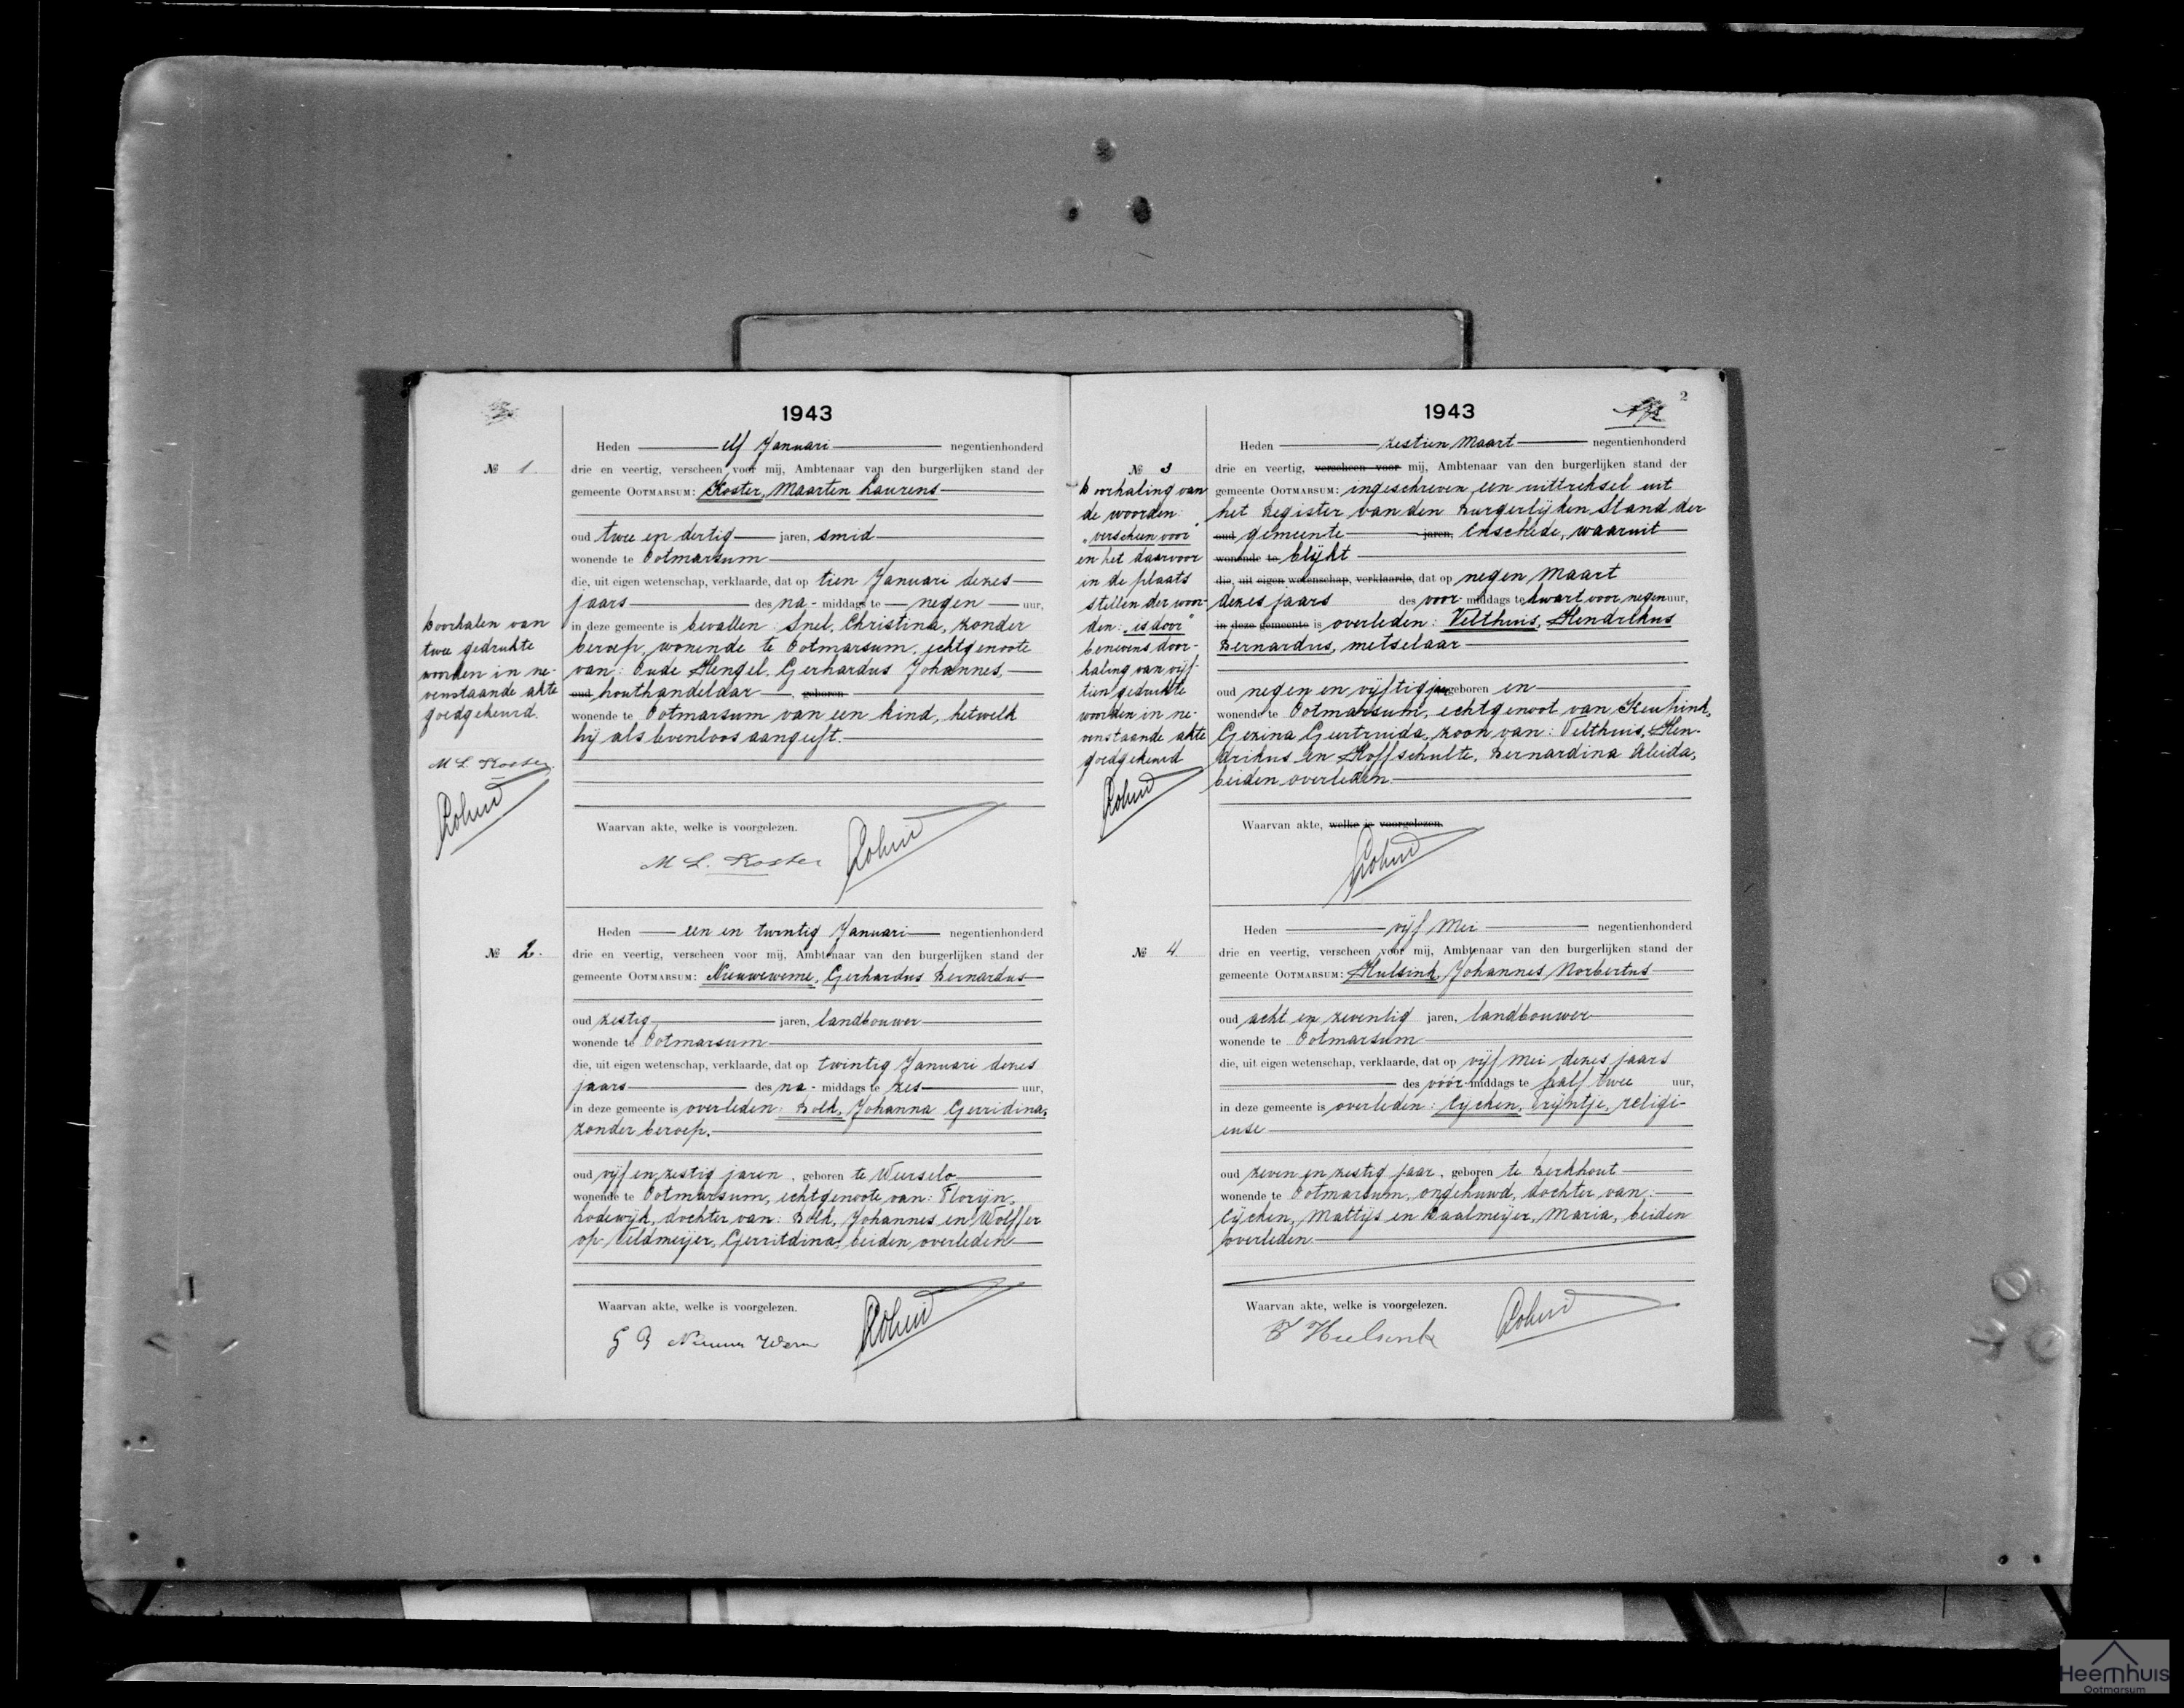 1943
Heden elf Januari negentienhonderd
№ 1.
drie en veertig, verscheen voor mij, Ambtenaar van den burgerlijken stand der
gemeente OOTMARSUM: Koster, Maarten Laurens
oud twee en dertig jaren, smid
wonende te Ootmarsum
die, uit eigen wetenschap, verklaarde, dat op tien Januari dezes
jaars des na-middags te negen uur,
in deze gemeente is bevallen: Snel, Christina, zonder
beroep, wonende te Ootmarsum, echtgenoote
van: Oude Hengel, Gerhardus Johannes,
oud houthandelaar, geboren
wonende te Ootmarsum van een kind, hetwelk
hij als levenloos aangeeft.
Doorhalen van
twee gedrukte
woorden in ne-
venstaande akte
goedgekeurd.
M L. Koster
Waarvan akte, welke is voorgelezen.
M L. Koster
Heden een en twintig Januari negentienhonderd
№ 2.
drie en veertig, verscheen voor mij, Ambtenaar van den burgerlijken stand der
gemeente OOTMARSUM: Nieuweweme, Gerhardus Bernardus
oud zestig jaren, landbouwer
wonende te Ootmarsum
die, uit eigen wetenschap, verklaarde, dat op twintig Januari dezes
jaars des na-middags te zes uur,
in deze gemeente is overleden: Bolk, Johanna Gerridina,
zonder beroep.
oud vijf en zestig jaren, geboren te Weerselo
wonende te Ootmarsum, echtgenoote van: Florijn,
Lodewijk, dochter van: Bolk, Johannes en Wolffer
op Veldmeijer, Gerritdina, beiden overleden
Waarvan akte, welke is voorgelezen.
2
1943
Heden zestien Maart negentienhonderd
№ 3
drie en veertig, verscheen voor mij, Ambtenaar van den burgerlijken stand der
gemeente OOTMARSUM: ingeschreven een uittreksel uit
het Register van den Burgerlijken Stand der
oud gemeente jaren, Enschede, waaruit
wonende te blijkt
die, uit eigen wetenschap, verklaarde, dat op negen Maart
dezes jaars des voor-middags te kwart voor negen uur,
in deze gemeente is overleden: Velthuis, Hendrikus
Bernardus, metselaar
oud negen en vijftig jaar geboren en
wonende te Ootmarsum, echtgenoot van Keupink,
Gezina Geertruida, zoon van: Velthuis, Hen-
drikus en Hoffschulte, Bernardina Aleida,
beiden overleden.
Doorhaling van
de woorden:
„verscheen voor"
en het daarvoor
in de plaats
stellen der woor-
den: „is door"
benevens door-
haling van vijf-
tien gedrukte
woorden in ne-
venstaande akte
goedgekeurd
Waarvan akte, welke is voorgelezen.
Heden vijf Mei negentienhonderd
№ 4.
drie en veertig, verscheen voor mij, Ambtenaar van den burgerlijken stand der
gemeente OOTMARSUM: Hulsink, Johannes Norbertus
oud acht en zeventig jaren, landbouwer
wonende te Ootmarsum
die, uit eigen wetenschap, verklaarde, dat op vijf Mei dezes jaars
des vóór-middags te half twee uur,
in deze gemeente is overleden: Eijcken, Trijntje, religi-
euse
oud zeven en zestig jaar, geboren te Berkhout
wonende te Ootmarsum, ongehuwd, dochter van:
Eijcken, Mattijs en Baalmeijer, Maria, beiden
overleden
Waarvan akte, welke is voorgelezen.
J Hulsink
Heemhuis
Ootmarsum